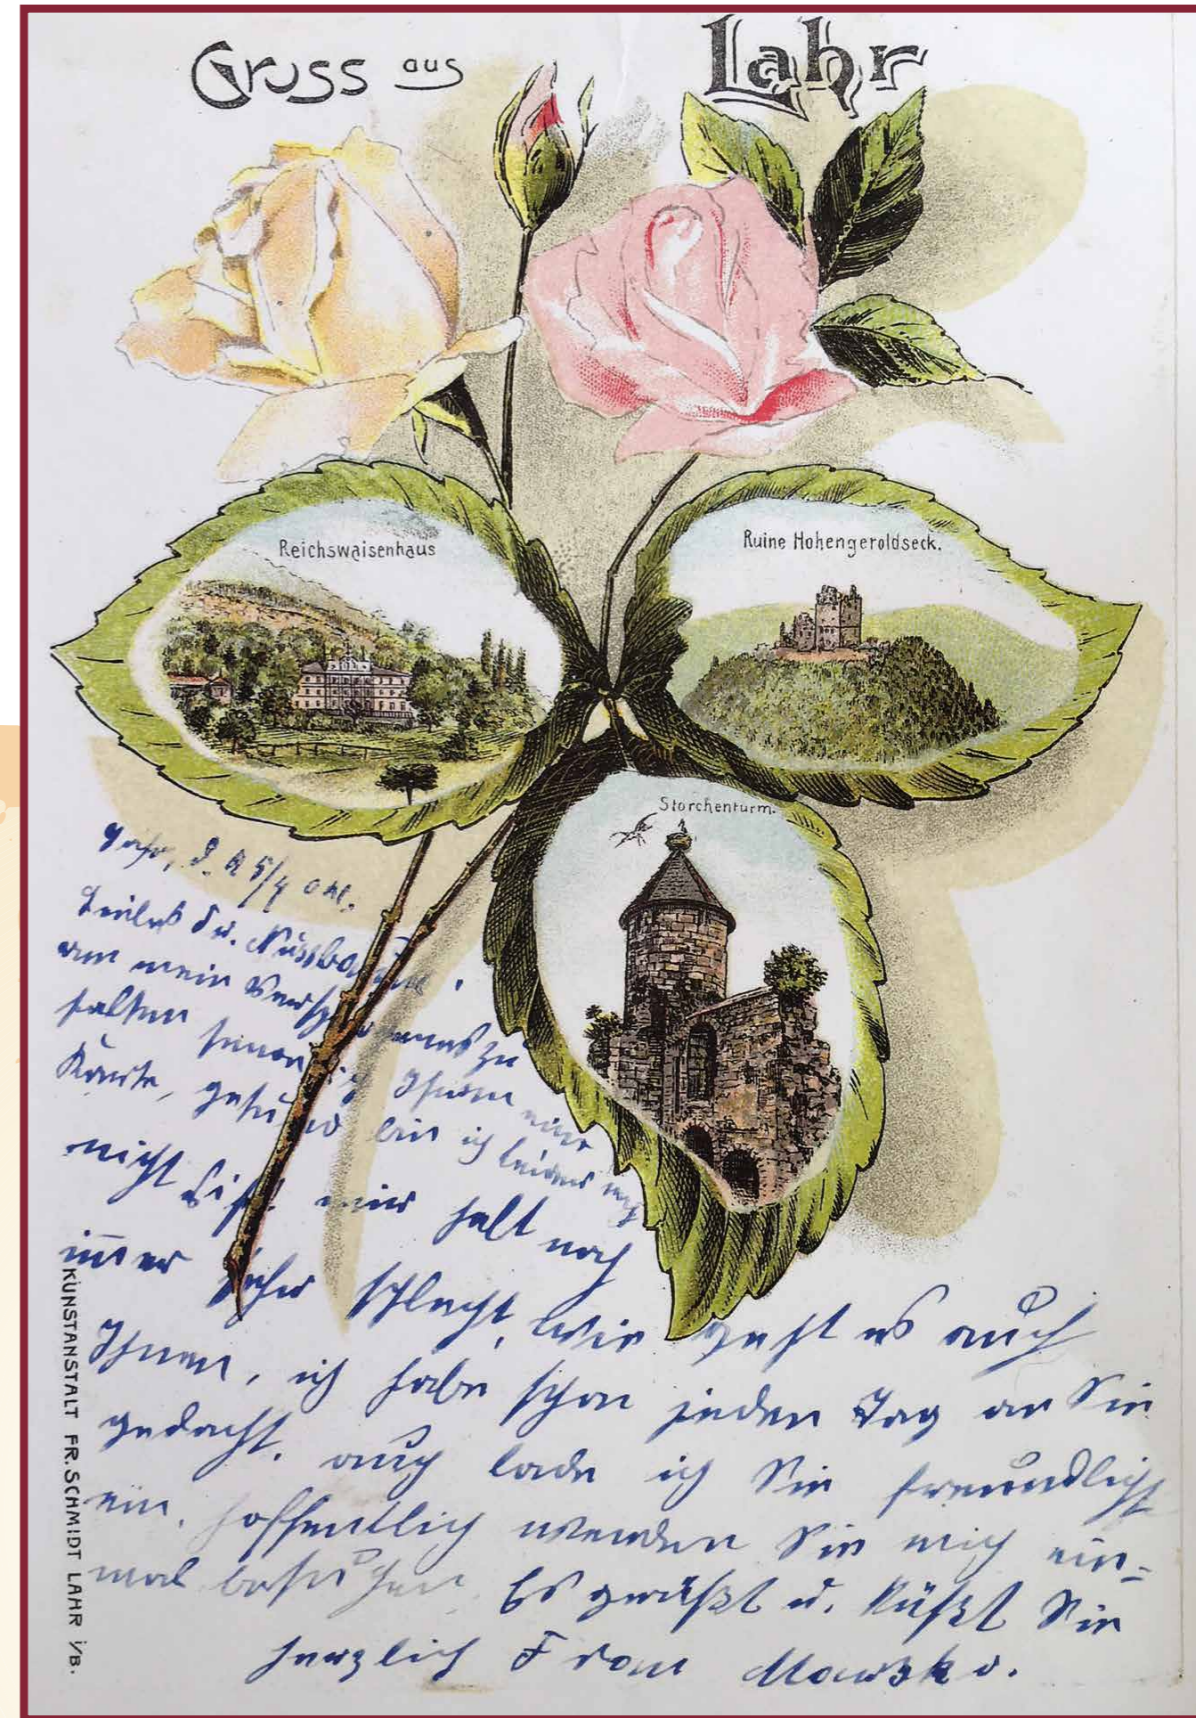 Gruss aus Lahr
Reichswaisenhaus
Ruine Hohengeroldseck.
Storchenturm.
Lahr, d.
Liebes Frl. Nussbaum,
um mein Versprechen zu
halten sende ich Ihnen eine
Karte, gesund bin ich leider noch
nicht es ist mir halt noch
immer sehr schlecht, wie geht es auch
Ihnen, ich habe schon jeden Tag an Sie
gedacht, auch lade ich Sie freundlichst
ein, hoffentlich werden Sie mich ein=
mal besuchen. Es grüßt u. küßt Sie
herzlich Frau
KUNSTANSTALT FR. SCHMIDT LAHR i/B.